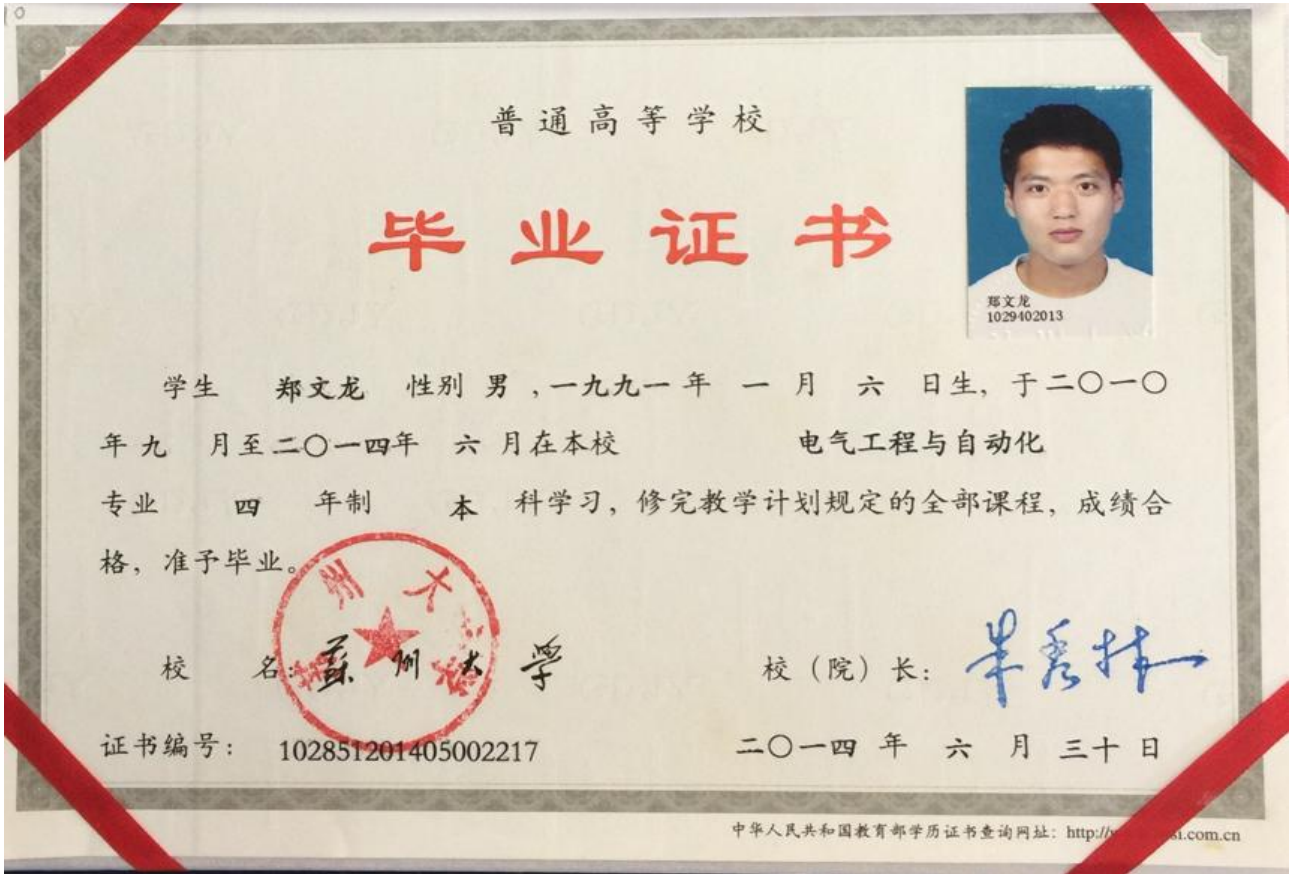 普通高等学校
毕业证书
郑文龙
1029402013
学生 郑文龙 性别 男 ,一九九一 年 一 月 六 日生, 于二〇一〇
年 九 月至二〇一四年 六 月在本校 电气工程与自动化
专业 四 年制 本 科学习, 修完教学计划规定的全部课程, 成绩合
格, 准予毕业。
州大
校 名: 蘇州大學 校（院）长: 朱秀林
证书编号: 102851201405002217 二〇一四 年 六 月 三十 日
中华人民共和国教育部学历证书查询网址: http:// si.com.cn